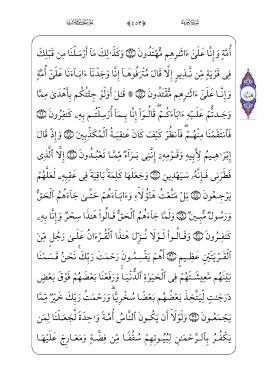 أُمَّةٍ وَإِنَّا عَلَىٰٓ ءَاثَٰرِهِم مُّهْتَدُونَ ۝ وَكَذَٰلِكَ مَآ أَرْسَلْنَا مِن قَبْلِكَ
فِى قَرْيَةٍ مِّن نَّذِيرٍ إِلَّا قَالَ مُتْرَفُوهَآ إِنَّا وَجَدْنَآ ءَابَآءَنَا عَلَىٰٓ أُمَّةٍ
وَإِنَّا عَلَىٰٓ ءَاثَٰرِهِم مُّقْتَدُونَ ۝ قَٰلَ أَوَلَوْ جِئْتُكُم بِأَهْدَىٰ مِمَّا
وَجَدتُّمْ عَلَيْهِ ءَابَآءَكُمْ قَالُوٓا۟ إِنَّا بِمَآ أُرْسِلْتُم بِهِۦ كَٰفِرُونَ ۝
فَٱنتَقَمْنَا مِنْهُمْ فَٱنظُرْ كَيْفَ كَانَ عَٰقِبَةُ ٱلْمُكَذِّبِينَ ۝ وَإِذْ قَالَ
إِبْرَٰهِيمُ لِأَبِيهِ وَقَوْمِهِۦٓ إِنَّنِى بَرَآءٌ مِّمَّا تَعْبُدُونَ ۝ إِلَّا ٱلَّذِى
فَطَرَنِى فَإِنَّهُۥ سَيَهْدِينِ ۝ وَجَعَلَهَا كَلِمَةًۢ بَاقِيَةً فِى عَقِبِهِۦ لَعَلَّهُمْ
يَرْجِعُونَ ۝ بَلْ مَتَّعْتُ هَٰٓؤُلَآءِ وَءَابَآءَهُمْ حَتَّىٰ جَآءَهُمُ ٱلْحَقُّ
وَرَسُولٌ مُّبِينٌ ۝ وَلَمَّا جَآءَهُمُ ٱلْحَقُّ قَالُوا۟ هَٰذَا سِحْرٌ وَإِنَّا بِهِۦ
كَٰفِرُونَ ۝ وَقَالُوا۟ لَوْلَا نُزِّلَ هَٰذَا ٱلْقُرْءَانُ عَلَىٰ رَجُلٍ مِّنَ
ٱلْقَرْيَتَيْنِ عَظِيمٍ ۝ أَهُمْ يَقْسِمُونَ رَحْمَتَ رَبِّكَ نَحْنُ قَسَمْنَا
بَيْنَهُم مَّعِيشَتَهُمْ فِى ٱلْحَيَوٰةِ ٱلدُّنْيَا وَرَفَعْنَا بَعْضَهُمْ فَوْقَ بَعْضٍ
دَرَجَٰتٍ لِّيَتَّخِذَ بَعْضُهُم بَعْضًا سُخْرِيًّا وَرَحْمَتُ رَبِّكَ خَيْرٌ مِّمَّا
يَجْمَعُونَ ۝ وَلَوْلَآ أَن يَكُونَ ٱلنَّاسُ أُمَّةً وَٰحِدَةً لَّجَعَلْنَا لِمَن
يَكْفُرُ بِٱلرَّحْمَٰنِ لِبُيُوتِهِمْ سُقُفًا مِّن فِضَّةٍ وَمَعَارِجَ عَلَيْهَا